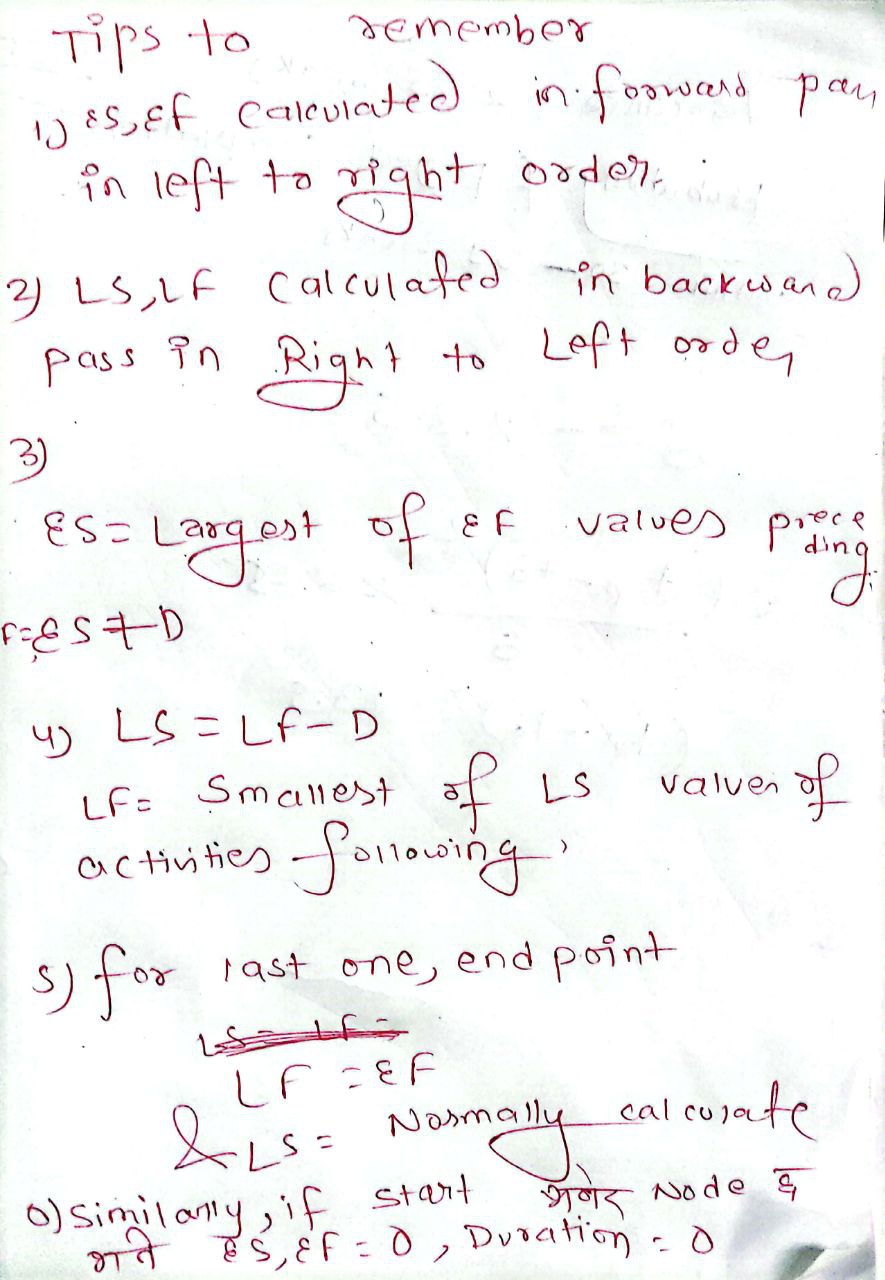 Tips to remember
1) ES, EF calculated in forward pass
in left to right order.
2) LS, LF calculated in backward
pass in Right to Left order
3)
ES = Largest of EF values prece
ding
F = ES + D
4) LS = LF - D
LF = Smallest of LS values of
activities following,
5) for last one, end point
LF = EF
& LS = Normally calculate
6) Similarly, if start भनेर Node छ
भने ES, EF = 0, Duration = 0